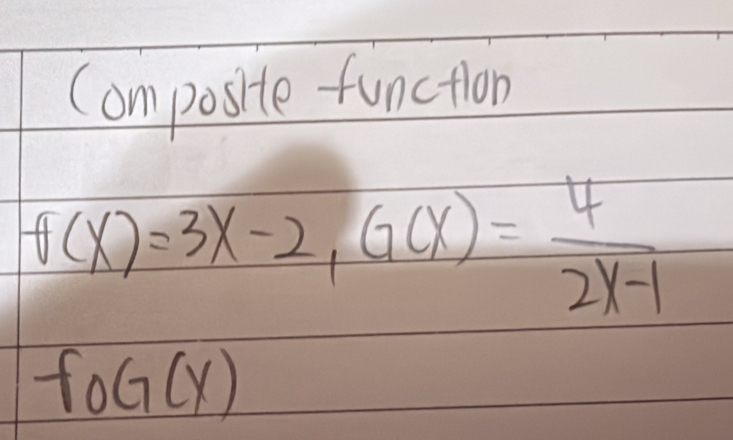 Composite function
f(X)=3X-2, G(X)=4/2X-1
foG(X)